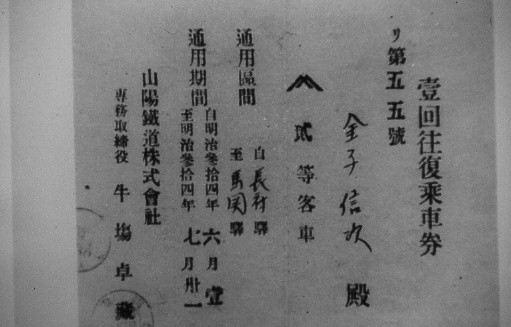 壹回往復乘車券
リ第五五號
金子信次殿
貳等客車
通用區間
自長府驛
至馬関驛
通用期間
自明治參拾四年六月壹
至明治參拾四年七月卅一
山陽鐵道株式會社
專務取締役 牛塲卓藏